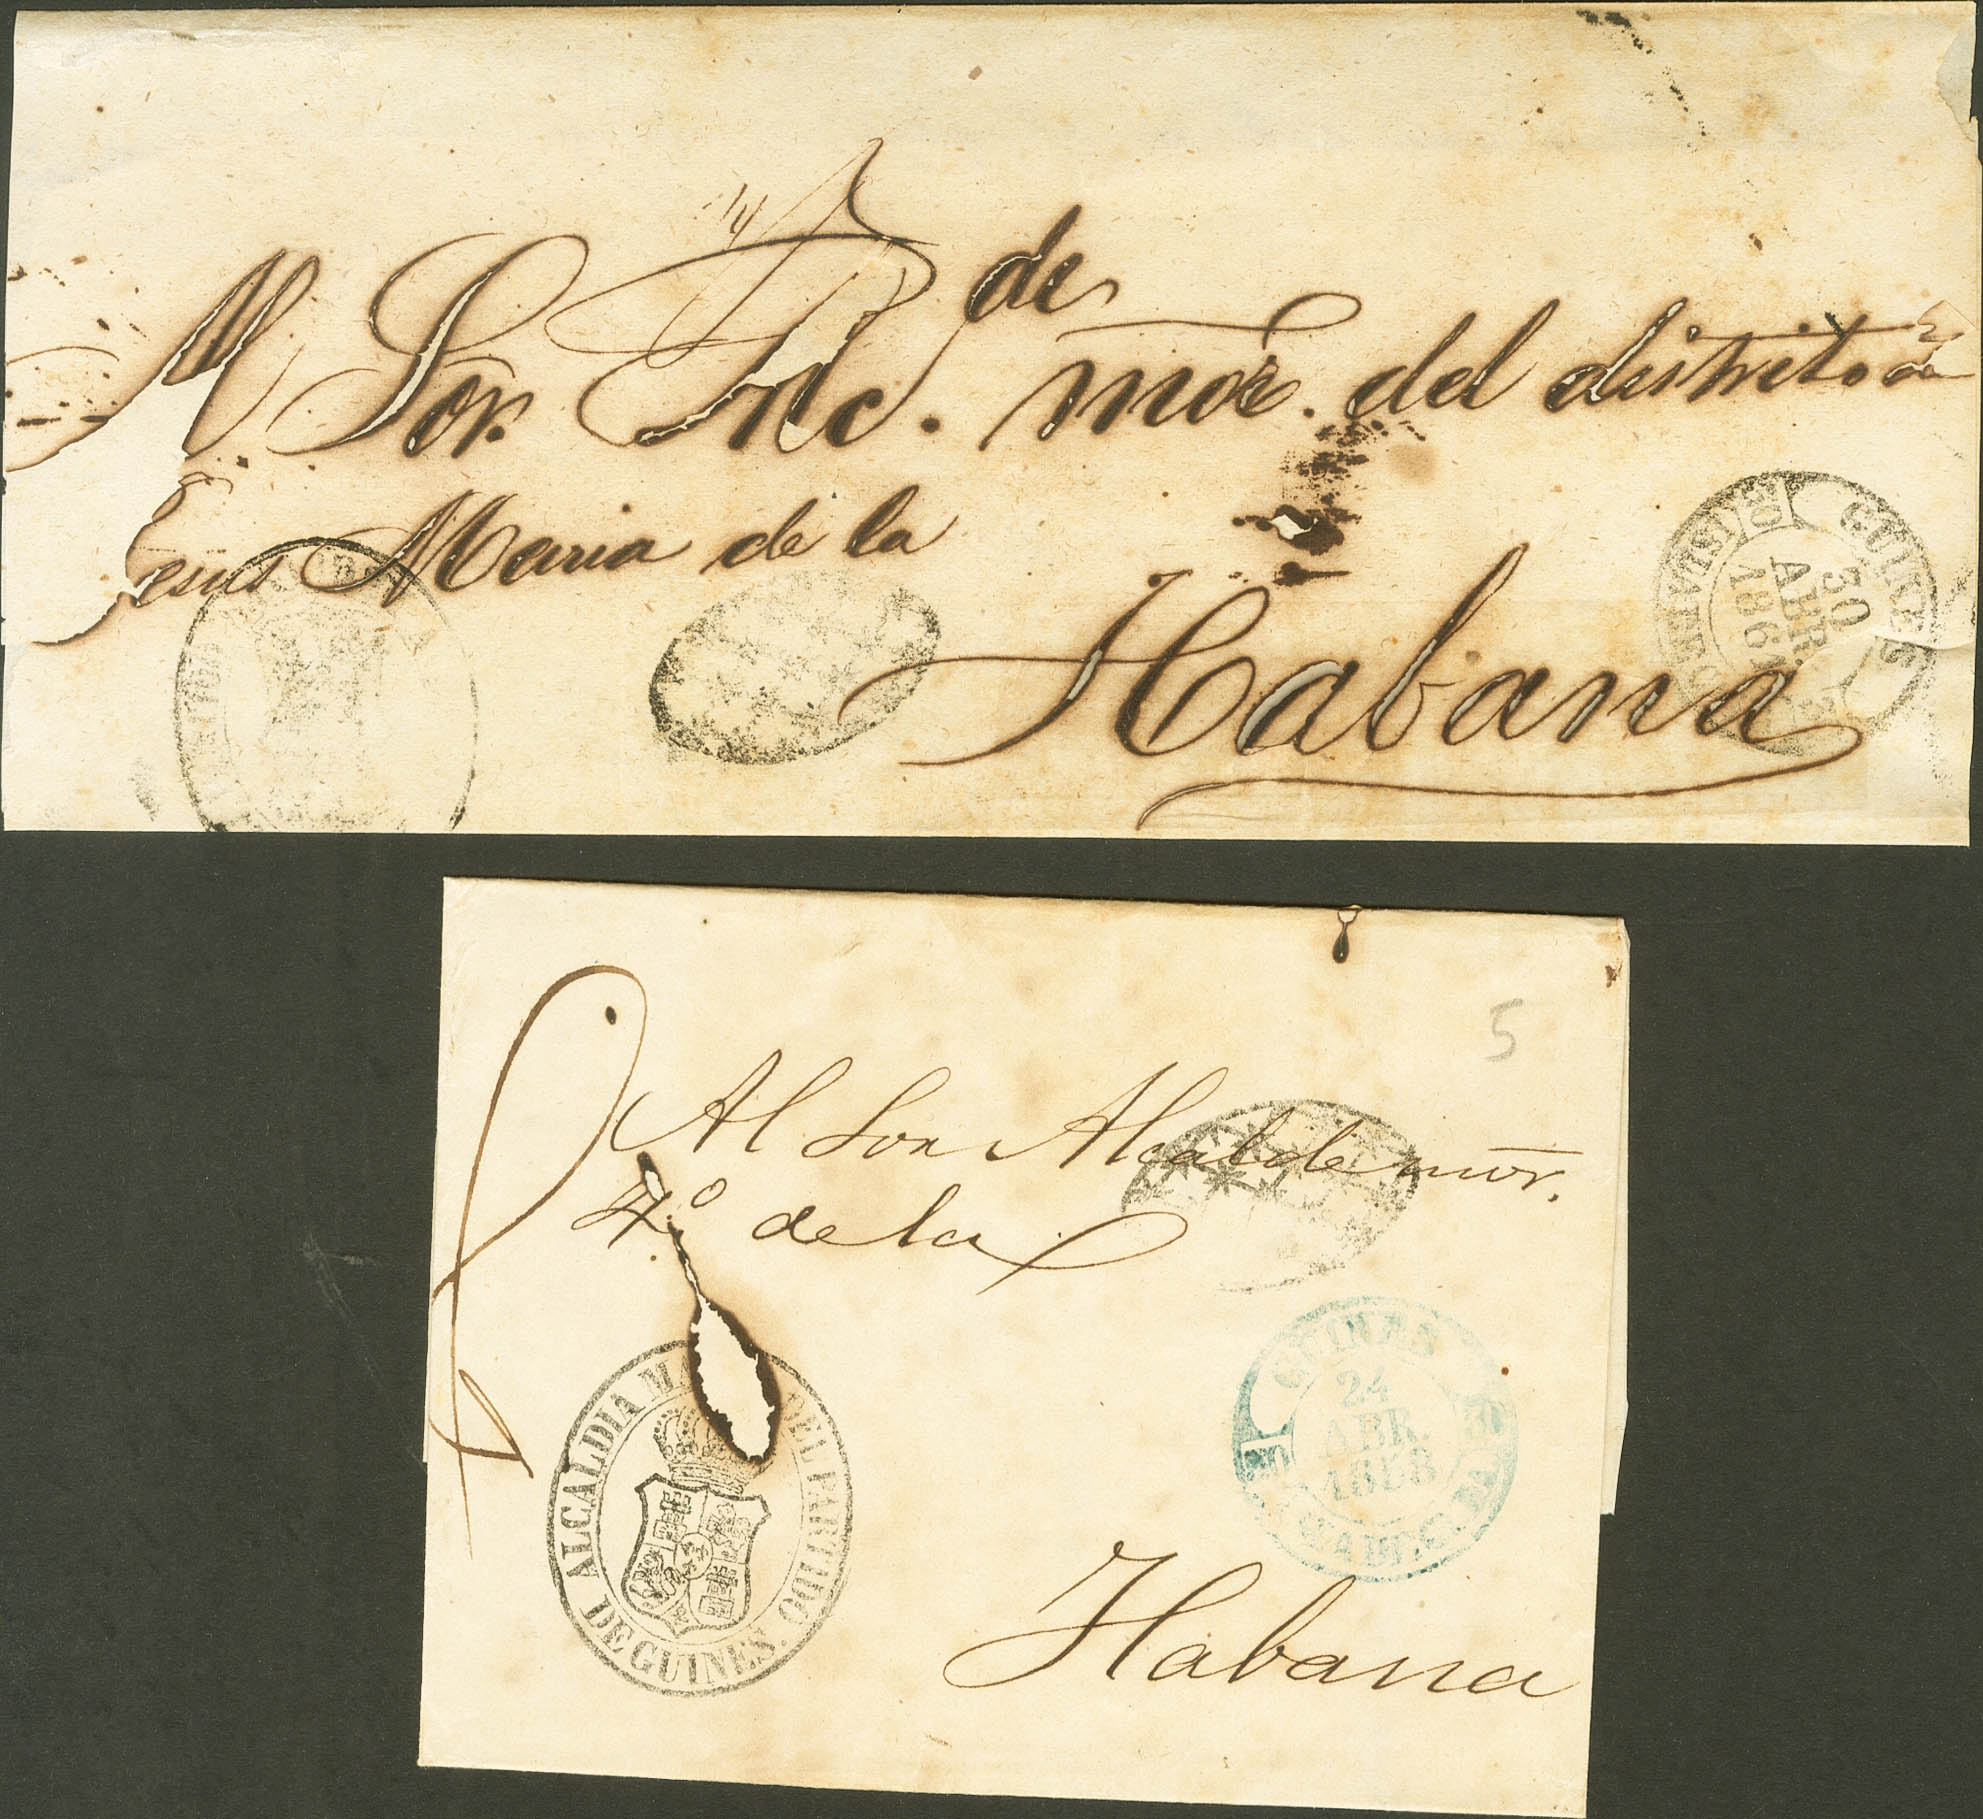 Al Sor. Alc.de mor. del distrito de
Jesus Maria de la
Habana
GUINES
30
ABR.
186
5
Al Sor Alcalde mor.
4º de la
GUINES
24
ABR.
1858
ALCALDIA MA DEL PARTIDO
DE GUINES.
Habana